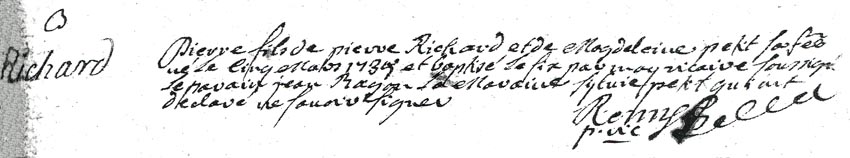 B
Richard
Pierre fils de pierre Richard et de Magdeleine petit sa fẽ
né le cinq Mars et baptisé le six par moy vicaire soussigné
le parain jean Ragon La Maraine sylvie petit qui ont
declaré ne savoir signer
Remy
p. vic